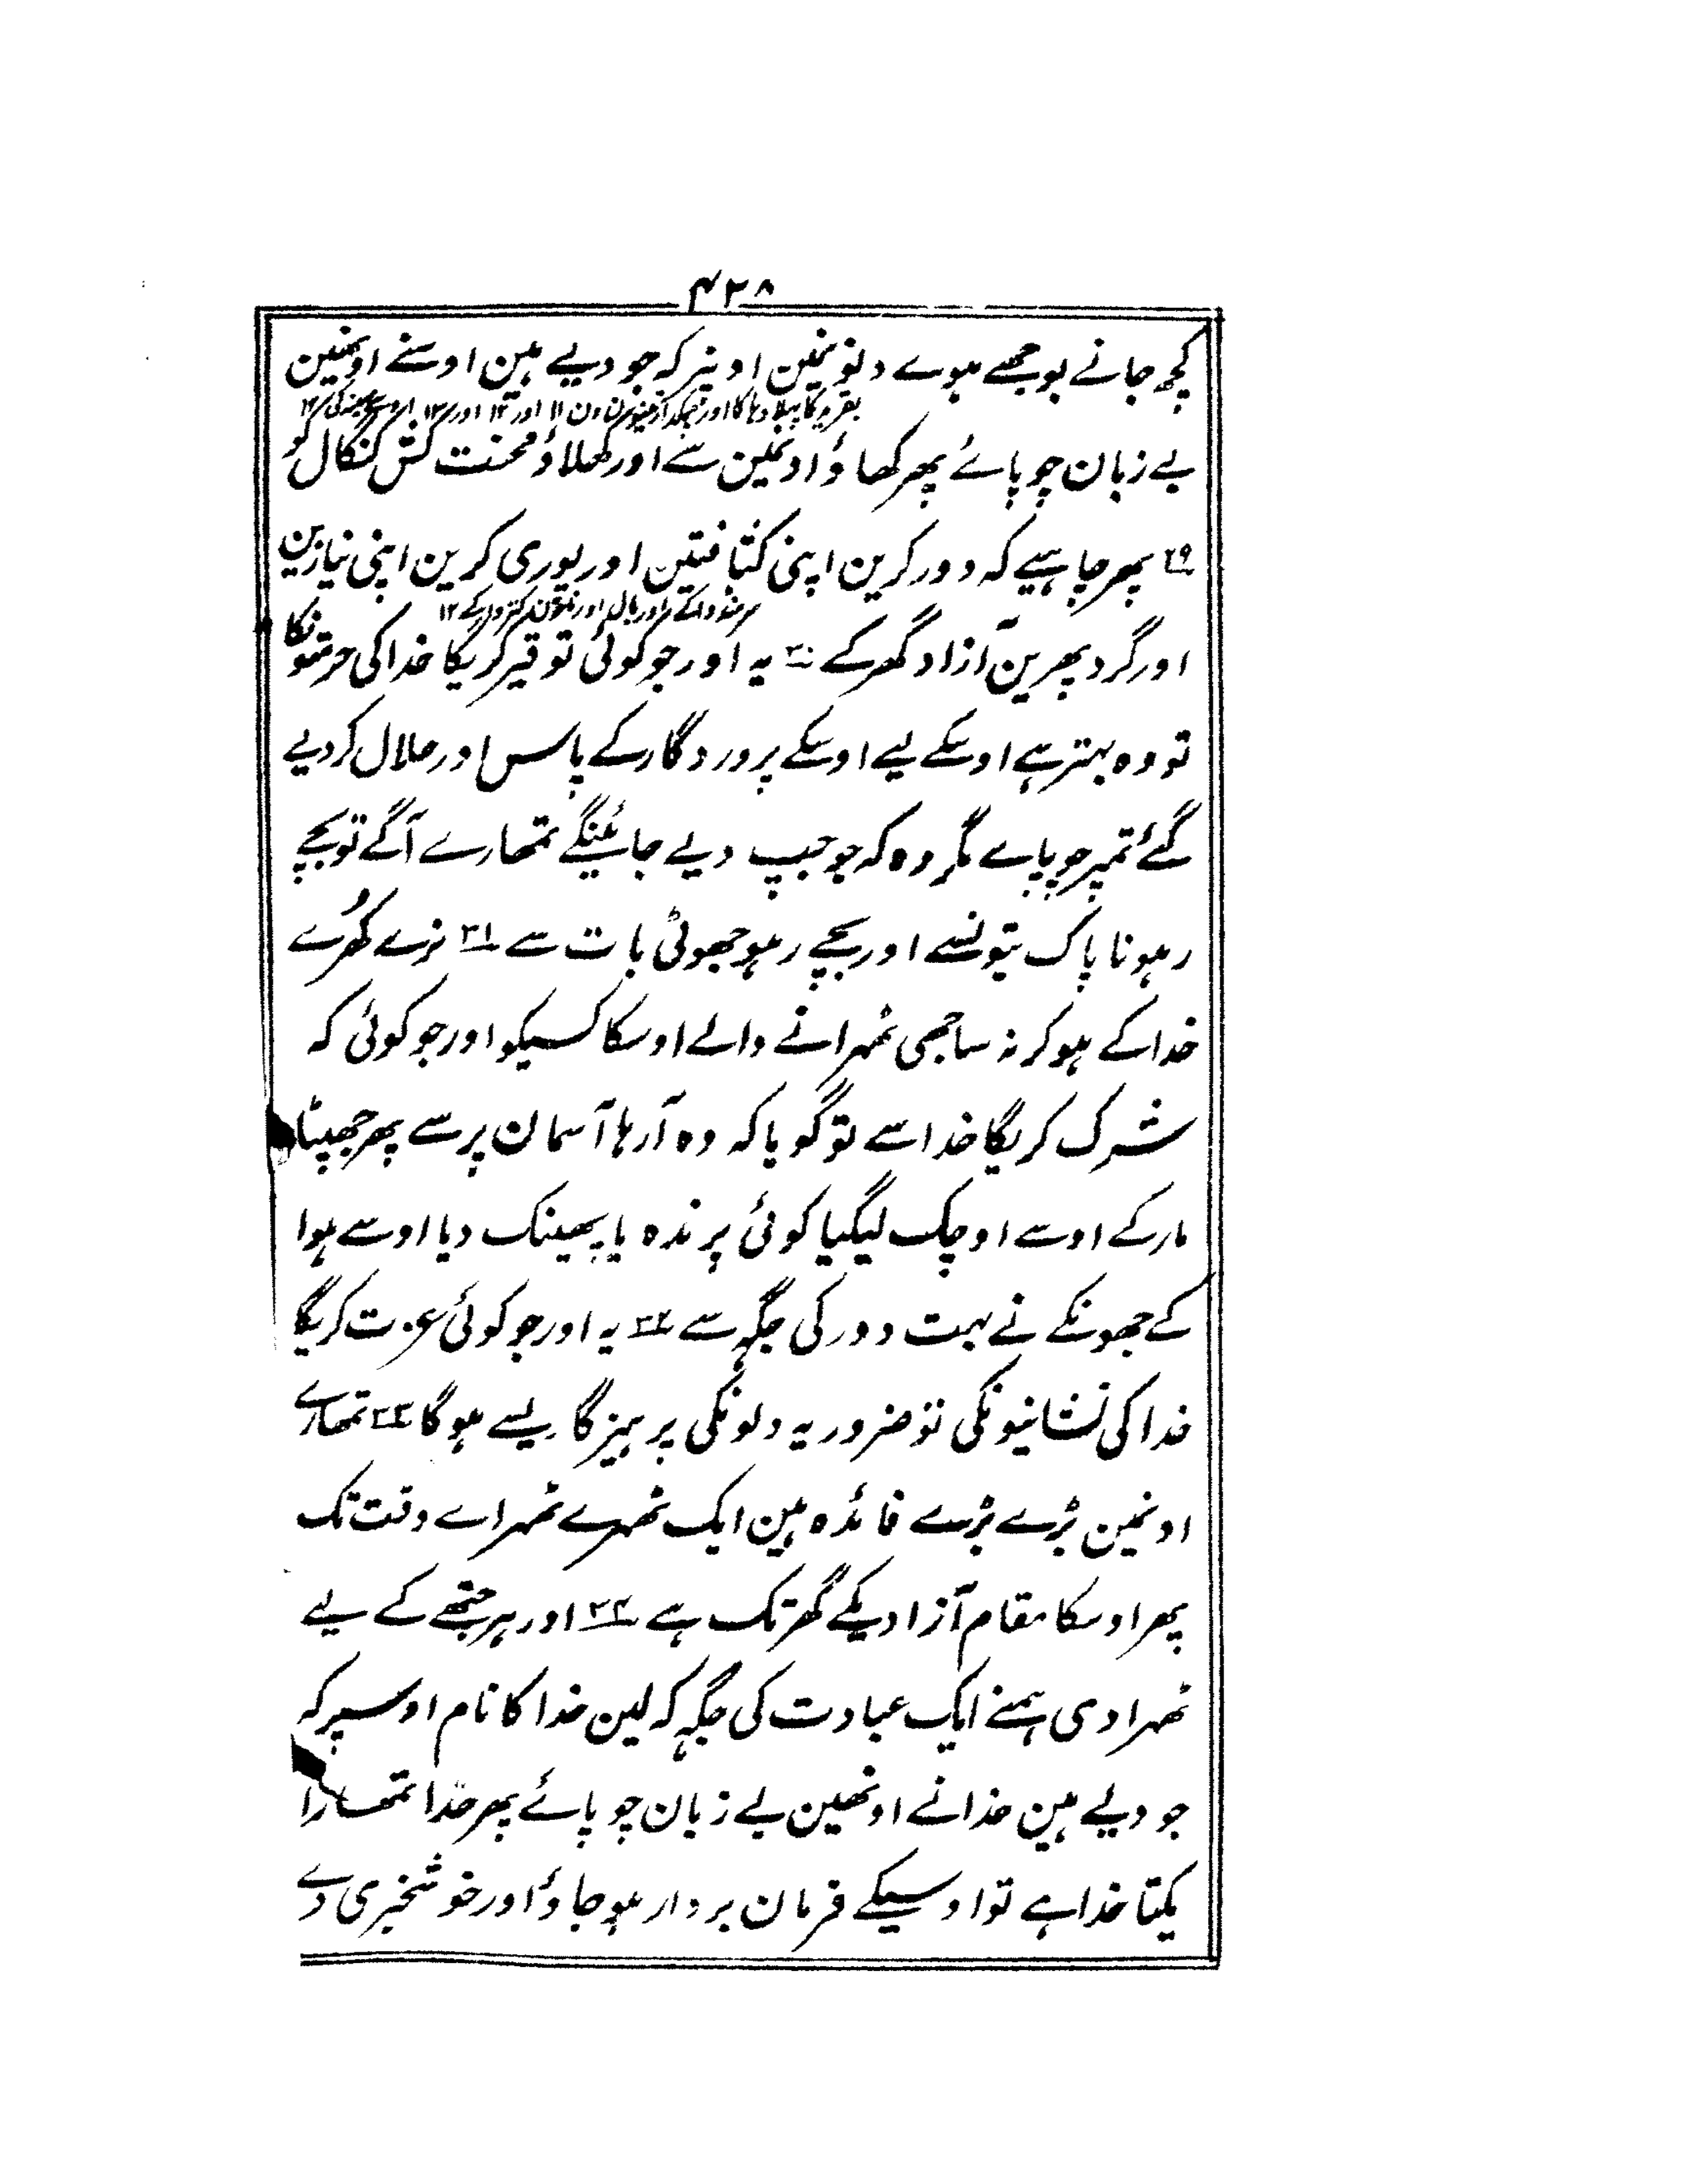 ۴۲۸
کچھ جانے بوجھے ہوے دنونمین اوپر کہ جو دیے ہین اوسنے اونھین
بقرعید کا پہلا دہا کا اور
بے زبان چوپائے پھر کھاؤ اونمین سے اور کھلاؤ محنت کش کنگال کو
۲۹ پھر چاہیے کہ دور کرین اپنی کثافتین اور پوری کرین اپنی نیازین
سر منڈوا کے اور بال اور ناخون کتروا کے ۱۲
اور گرد پھرین آزاد گھر کے ۳۰ یہ اور جو کوئی توقیر کریگا خدا کی حرمتونکا
تو وہ بہتر ہے اوسکے لیے اوسکے پروردگار کے پاس اور حلال کردیے
گئے تمپر چوپاے مگر وہ کہ جو جپ دیے جائینگے تمھارے آگے تو بچے
رہو ناپاک بتونسے اور بچے رہو جھوٹی بات سے ۳۱ نرے کھرے
خدا کے ہوکر نہ ساجھی ٹھہرانے والے اوسکا کسیکو اور جو کوئی کہ
شرک کریگا خدا سے تو گویا کہ وہ آرہا آسمان پر سے پھر جھپٹا
مار کے اوسے اوچک لیگیا کوئی پرندہ یا پھینک دیا اوسے ہوا
کے جھونکے نے بہت دور کی جگہ سے ۳۲ یہ اور جو کوئی عزت کریگا
خدا کی نشانیونکی تو ضرور یہ دلونکی پرہیزگاریسے ہوگا ۳۳ تمھارے
اونمین بڑے بڑے فائدہ ہین ایک ٹھہرے ٹھہراے وقت تک
پھر اوسکا مقام آزادیکے گھر تک ہے ۳۴ اور ہر جتھے کے لیے
ٹھہرادی ہمنے ایک عبادت کی جگہ کہ لین خدا کا نام اوسپر کہ
جو دیے ہین خدا نے اونھین بے زبان چوپائے پھر خدا تمھارا
یکتا خدا ہے تو اوسیکے فرمان بردار ہوجاؤ اور خوشخبری دے